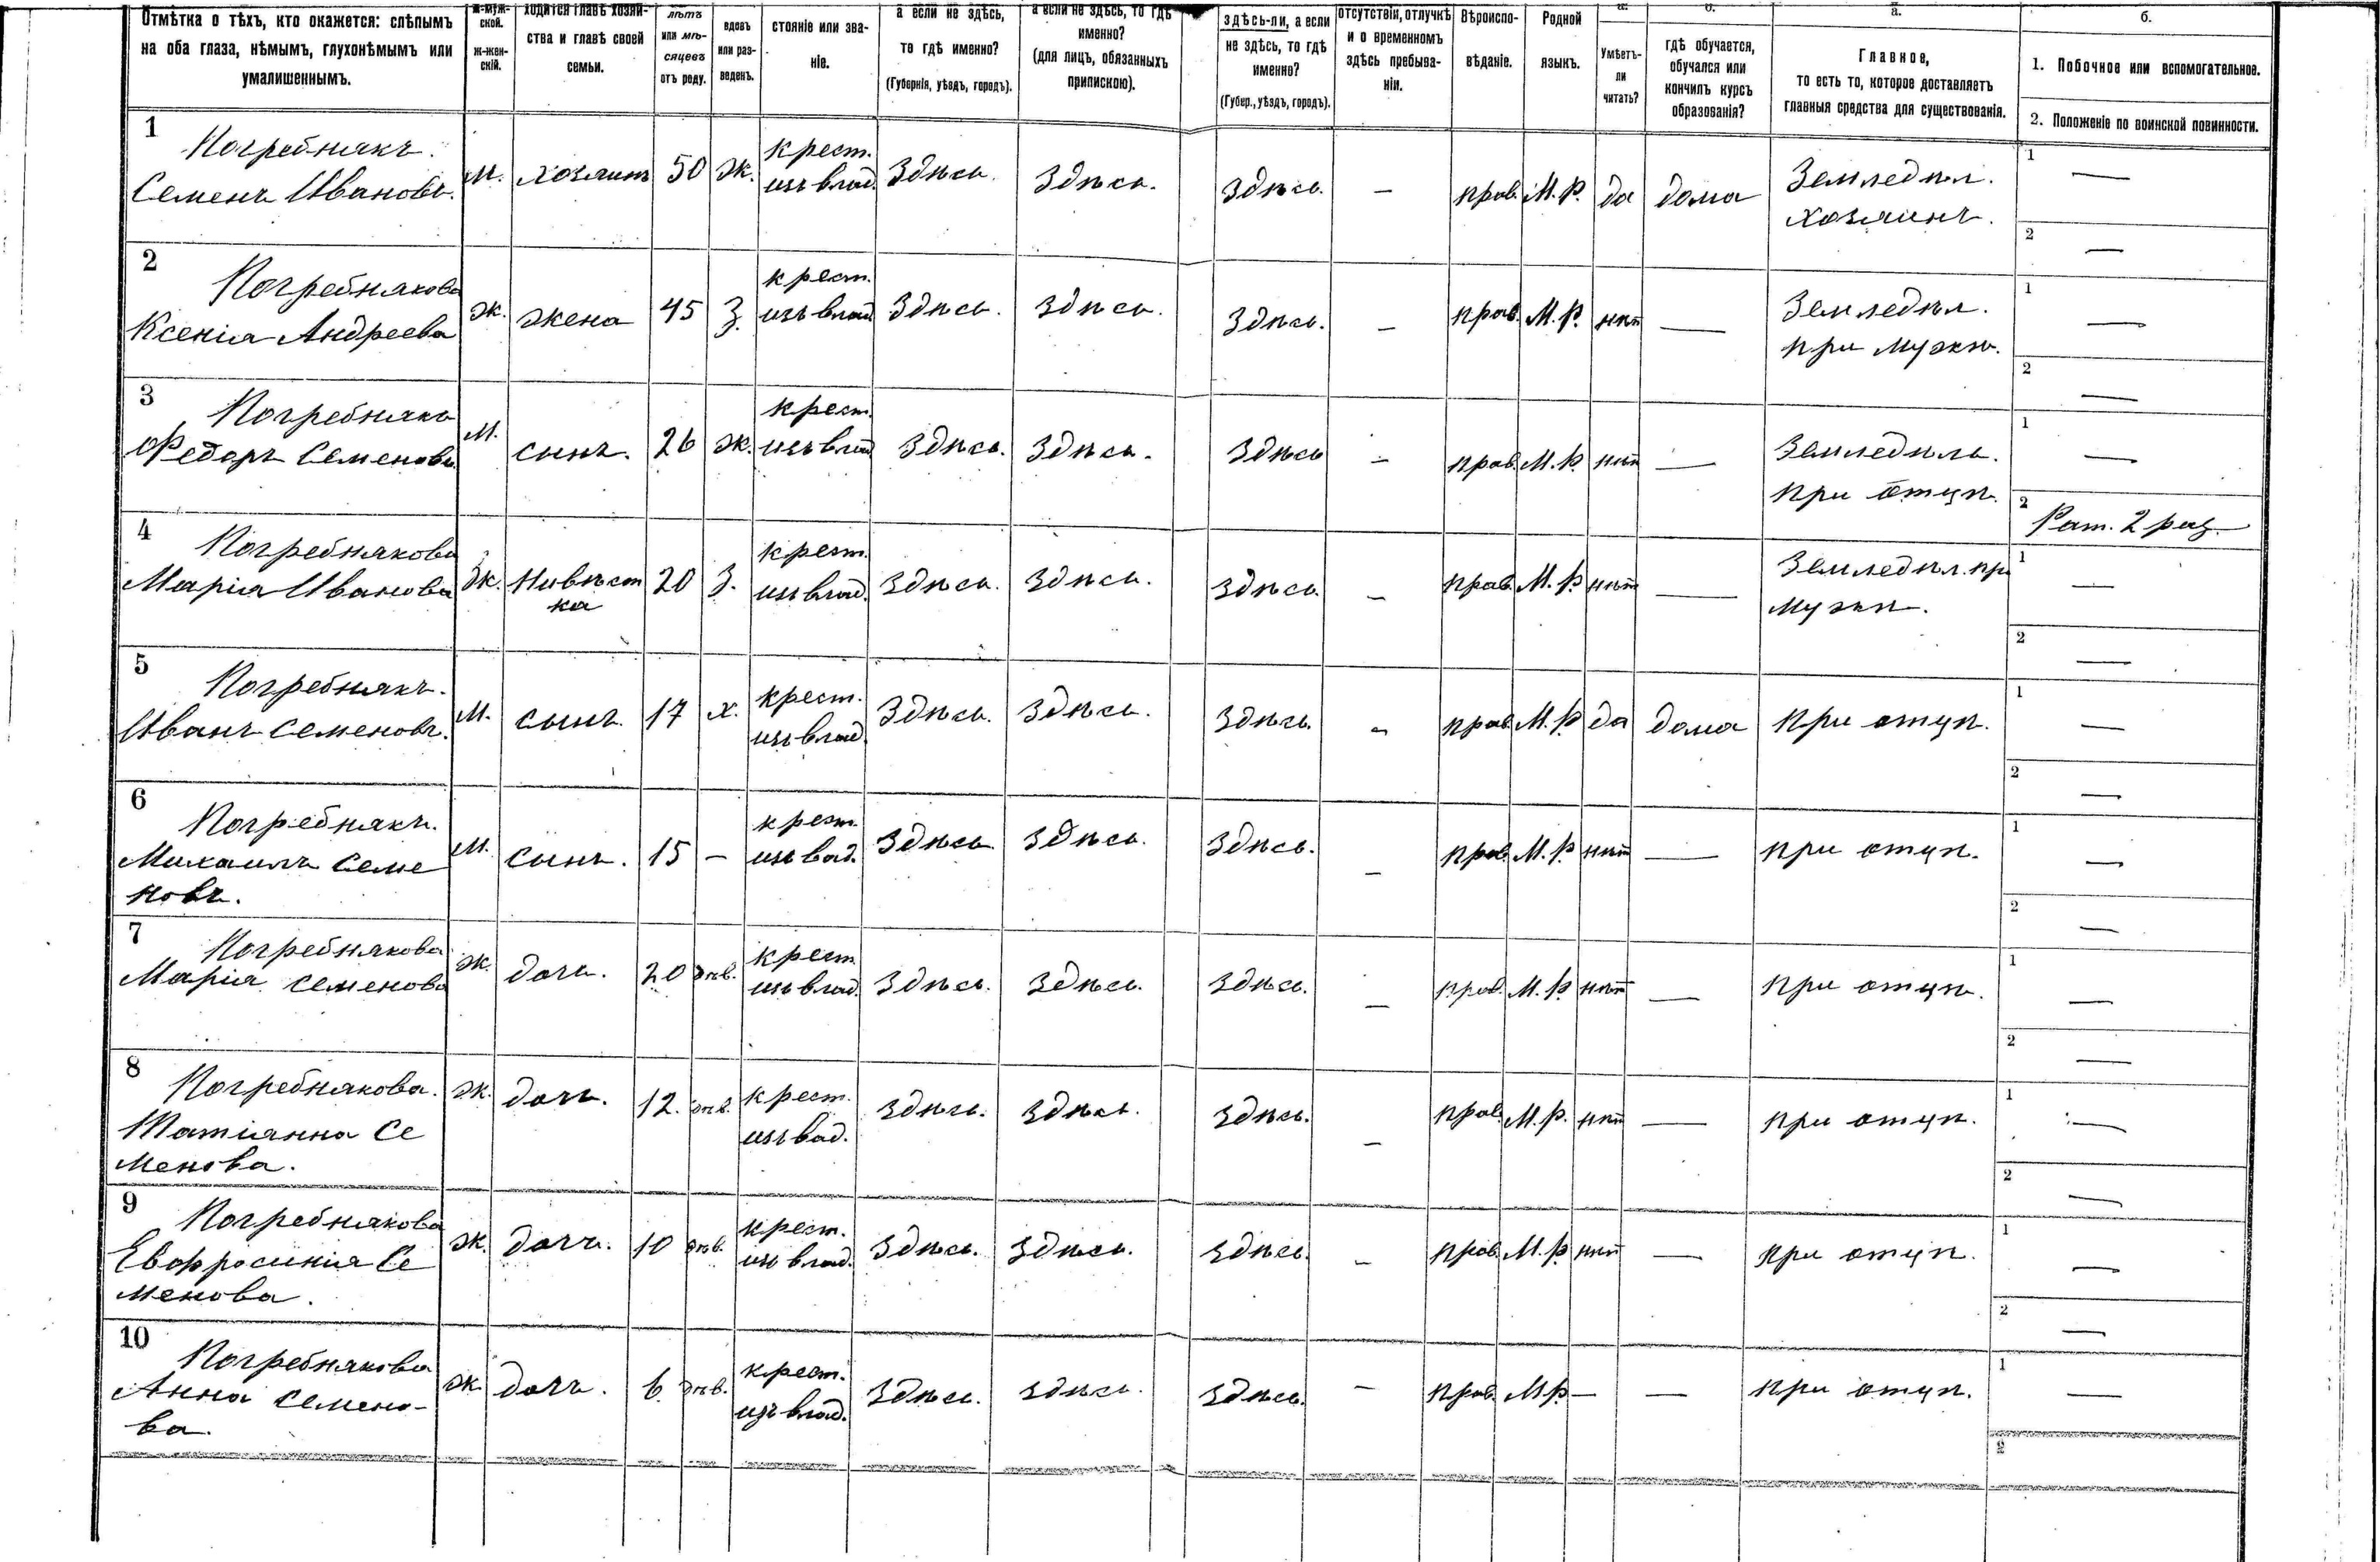 Отмѣтка о тѣхъ, кто окажется: слѣпымъ
на оба глаза, нѣмымъ, глухонѣмымъ или
умалишеннымъ.
м-муж-
ской.
ж-жен-
скій.
ходится главѣ хозяй-
ства и главѣ своей
семьи.
лѣтъ
или мѣ-
сяцевъ
отъ роду.
вдовъ
или раз-
веденъ.
стояніе или зва-
ніе.
а если не здѣсь,
то гдѣ именно?
(Губернія, уѣздъ, городъ).
а если не здѣсь, то гдѣ
именно?
(для лицъ, обязанныхъ
припискою).
здѣсь-ли, а если
не здѣсь, то гдѣ
именно?
(Губер., уѣздъ, городъ).
отсутствіи, отлучкѣ
и о временномъ
здѣсь пребыва-
ніи.
Вѣроиспо-
вѣданіе.
Родной
языкъ.
а.
Умѣетъ-
ли
читать?
б.
гдѣ обучается,
обучался или
кончилъ курсъ
образованія?
а.
Главное,
то есть то, которое доставляетъ
главныя средства для существованія.
б.
1. Побочное или вспомогательное.
2. Положеніе по воинской повинности.
1
Погребнякъ.
Семенъ Ивановъ.
м. хозяинъ 50 ж. крест. изъ влад. Здѣсь. Здѣсь. Здѣсь. — прав. М.Р. да дома Земледѣл. 1 —
хозяинъ. 2 —
2
Погребнякова
Ксенія Андреева
ж. жена 45 З. крест. изъ влад. Здѣсь. Здѣсь. Здѣсь. — прав. М.Р. нѣт — Земледѣл. 1 —
при мужѣ. 2 —
3
Погребнякъ
Федоръ Семеновъ.
м. сынъ. 26 ж. крест. изъ влад Здѣсь. Здѣсь. Здѣсь — прав. М.Р. нѣт — Земледѣль. 1 —
при отцѣ. 2 Рат. 2 раз.
4
Погребнякова
Марія Иванова
ж. Нивѣст 20 З. крест. изъ влад. Здѣсь. Здѣсь. Здѣсь — прав. М.Р. нѣт — Земледѣл. при 1 —
ка
мужѣ. 2 —
5
Погребнякъ.
Иванъ Семеновъ.
м. сынъ. 17 х. крест. изъ влад. Здѣсь. Здѣсь. Здѣсь. — прав. М.Р. да дома при отцѣ. 1 —
2 —
6
Погребнякъ.
Михаилъ Семе
новъ.
м. сынъ. 15 — крест. изъ вад. Здѣсь. Здѣсь. Здѣсь. — прав. М.Р. нѣт — при отцѣ. 1 —
2 —
7
Погребнякова
Марія Семенова
ж. дочь. 20 дѣв. крест. изъ влад. Здѣсь. Здѣсь. Здѣсь. — прав. М.Р. нѣт — при отцѣ. 1 —
2 —
8
Погребнякова.
Татіанна Се
менова.
ж. дочь. 12. дѣв. крест. изъ вад. Здѣсь. Здѣсь. Здѣсь. — прав. М.Р. нѣт — при отцѣ. 1 —
2 —
9
Погребнякова
Евфросинія Се
менова.
ж. дочь. 10 дѣв. крест. изъ влад. Здѣсь. Здѣсь. Здѣсь. — прав. М.Р. нѣт — при отцѣ. 1 —
2 —
10
Погребнякова
Анна Семено-
ва.
ж. дочь. 6 дѣв. крест. изъ влад. Здѣсь. Здѣсь. Здѣсь. — прав. М.Р. — — при отцѣ. 1 —
2